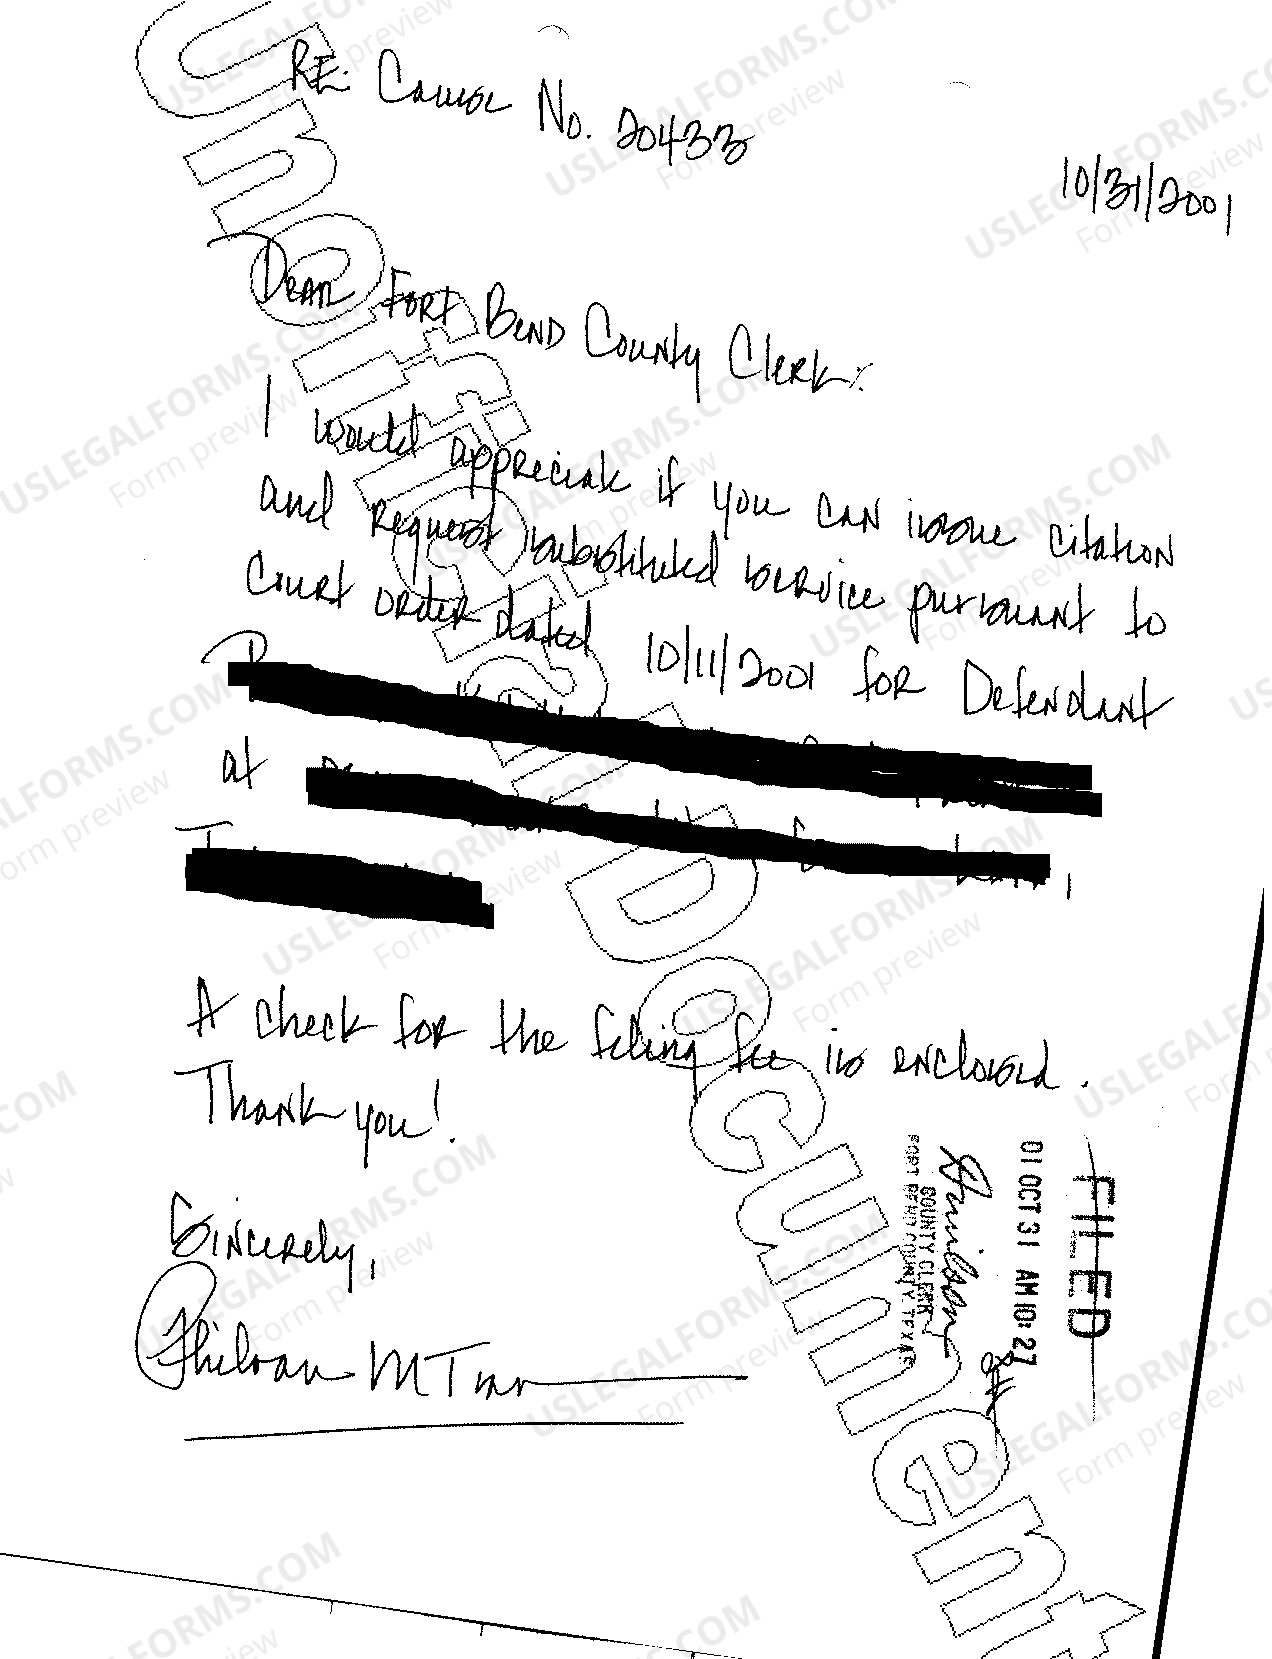 RE: Cause No. 20433
10/31/2001
Dear Fort Bend County Clerk:
I would appreciate if you can issue citation
and request substituted service pursuant to
Court order dated 10/11/2001 for Defendant
at
A check for the filing fee is enclosed.
Thank you!
Sincerely,
FILED
01 OCT 31 AM 10:27
COUNTY CLERK
FORT BEND COUNTY TEXAS
Unofficial Document
USLEGALFORMS.COM
Form preview